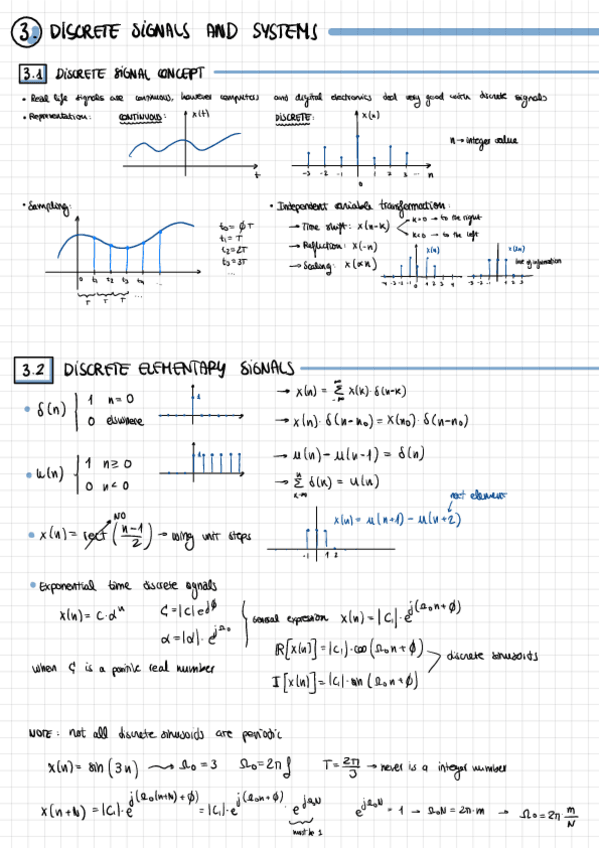 3. DISCRETE SIGNALS AND SYSTEMS
3.1 DISCRETE SIGNAL CONCEPT
• Real life signals are continuous, however computers and digital electronics deal very good with discrete signals
• Representation: CONTINUOUS: x(t) t DISCRETE: x(n) n
-3 -2 -1 0 1 2 3 ... n
n → integer value
• Sampling:
0 t1 t2 t3 t4 ...
T T T ...
t0 = ϕT
t1 = T
t2 = 2T
t3 = 3T
...
• Independent variable transformation:
→ Time shift: x(n-k)
k>0 → to the right
k<0 → to the left
→ Reflection: x(-n)
→ Scaling: x(αn)
x(n)
-4 -3 -2 -1 0 1 2 3 4
x(2n)
-3 -2 -1 0 1 2 3
loss of information
3.2 DISCRETE ELEMENTARY SIGNALS
• δ(n) | 1 n=0
0 elsewhere
1
→ x(n) = Σ x(k)·δ(n-k)
→ x(n)·δ(n-n0) = x(n0)·δ(n-n0)
• u(n) | 1 n≥0
0 n<0
1
→ u(n) - u(n-1) = δ(n)
→ Σ δ(k) = u(n)
• x(n) = rect((n-1)/2) → using unit steps
NO
-1 1 2
x(n) = u(n+1) - u(n+2)
next element
• Exponential time discrete signals
x(n) = C·αⁿ
C = |C|e^jϕ
α = |α|·e^jΩ0
general expression x(n) = |C|·e^j(Ω0n+ϕ)
ℝ[x(n)] = |C|·cos(Ω0n+ϕ)
I[x(n)] = |C|·sin(Ω0n+ϕ)
discrete sinusoids
when C is a positive real number
NOTE: not all discrete sinusoids are periodic
x(n) = sin(3n) → Ω0 = 3 Ω0 = 2πf T = 2π/3 → never is a integer number
x(n+N) = |C|·e^j(Ω0(n+N)+ϕ) = |C|·e^j(Ω0n+ϕ)·e^jΩ0N e^jΩ0N = 1 → Ω0N = 2π·m → Ω0 = 2π m/N
must be 1